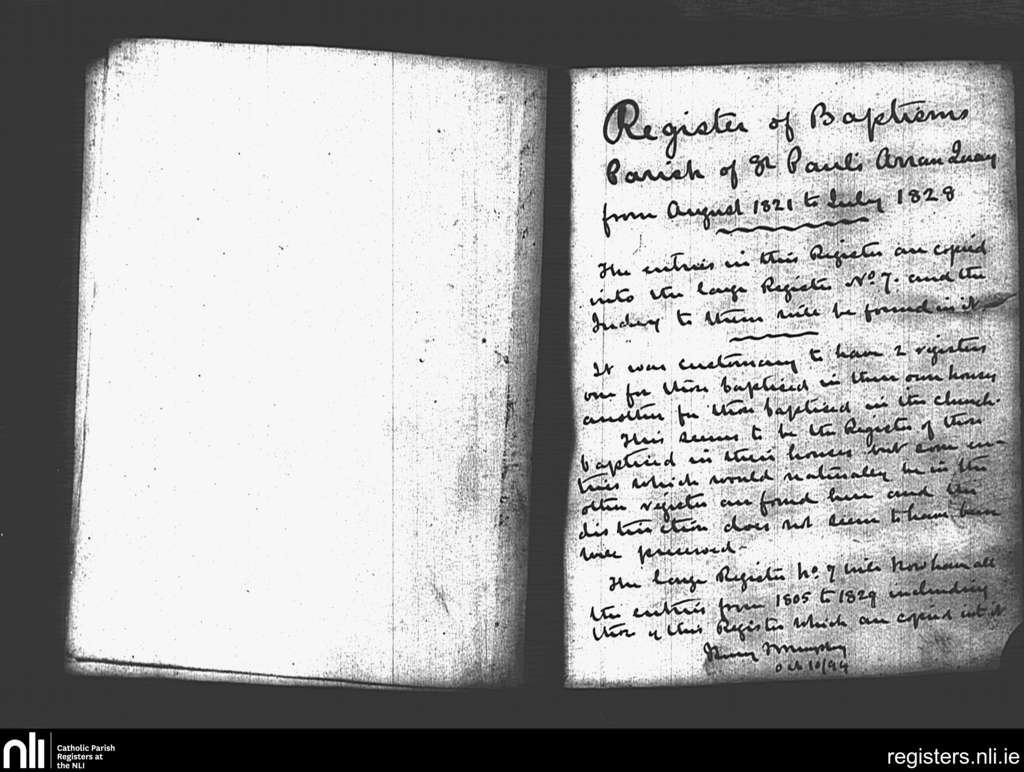 Register of Baptisms
Parish of St Paul's Arran Quay
from August 1821 to July 1828
The entries in this Register are copied
into the large Register No 7. and the
Index to them will be found in it
It was customary to have 2 registers
one for those baptised in their own houses
another for those baptised in the church.
This seems to be the Register of those
baptised in their houses but some en-
tries which would naturally be in the
other register are found here and the
distinction does not seem to have been
well preserved.
The large Register No. 7 will now have all
the entries from 1805 to 1829 including
those of this Register which are copied into it
Murphy
Oct 10/94
nli
Catholic Parish
Registers at
the NLI
registers.nli.ie